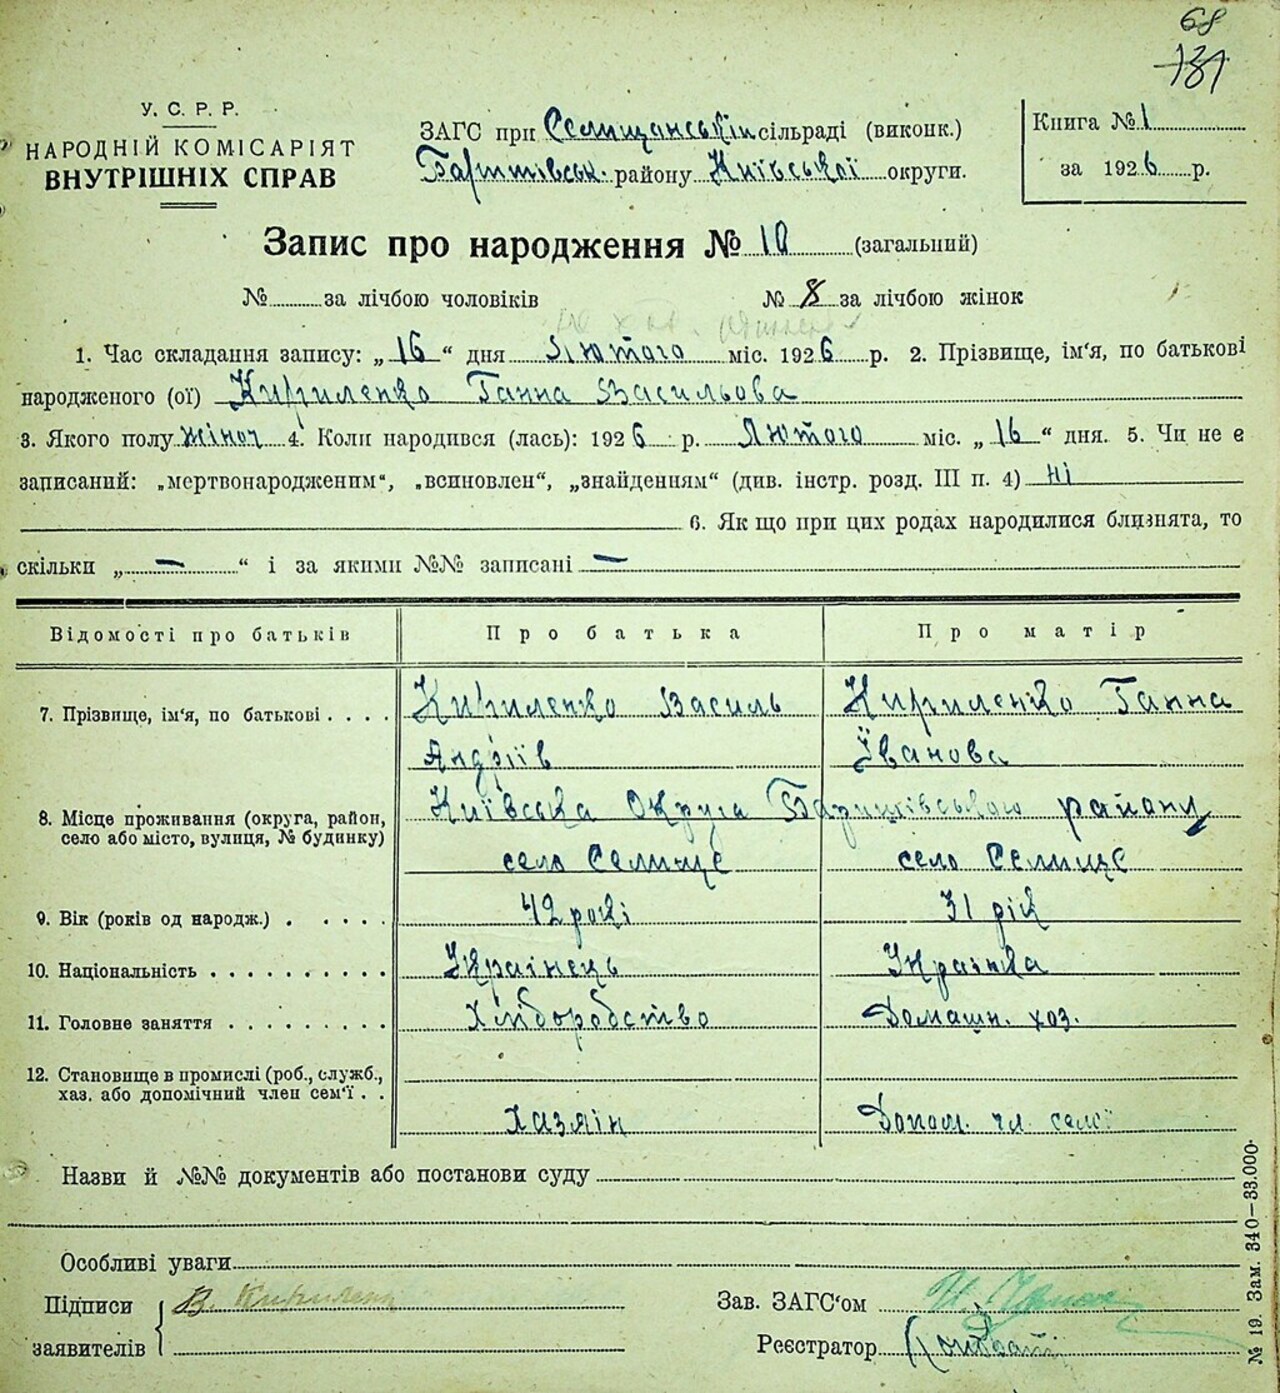 68
131
У. С. Р. Р.
НАРОДНІЙ КОМІСАРІЯТ
ВНУТРІШНІХ СПРАВ
ЗАГС при Селищанськім сільраді (виконк.)
району Київської округи.
Книга № 1
за 1926 р.
Запис про народження № 10 (загальний)
№ за лічбою чоловіків № 8 за лічбою жінок
1. Час складання запису: „16“ дня Лютого міс. 1926 р. 2. Прізвище, ім'я, по батькові
народженого (ої) Кириленко Ганна Васильова
3. Якого полу жіноч 4. Коли народився (лась): 1926 р. Лютого міс. „16“ дня. 5. Чи не є
записаний: „мертвонародженим“, „всиновлен“, „знайденням“ (див. інстр. розд. III п. 4) ні
6. Як що при цих родах народилися близнята, то
скільки „—“ і за якими №№ записані —
Відомості про батьків Про батька Про матір
7. Прізвище, ім'я, по батькові . . . . Кириленко Василь Кириленко Ганна
Андріїв Іванова
8. Місце проживання (округа, район, село або місто, вулиця, № будинку) Київська Округа Баришівського району
село Селище село Селище
9. Вік (років од народж.) . . . . . 42 рокі 31 рік
10. Національність . . . . . . . . . . Українець Украінка
11. Головне заняття . . . . . . . . . Хліборобство Домашн. хоз.
12. Становище в промислі (роб., служб.,
хаз. або допомічний член сем'ї . .
Хазяін Допом. чл. семї
Назви й №№ документів або постанови суду
Особливі уваги
Підписи В. Кириленко
заявителів
Зав. ЗАГС'ом
Реєстратор
№ 19. Зам. 340—33.000.